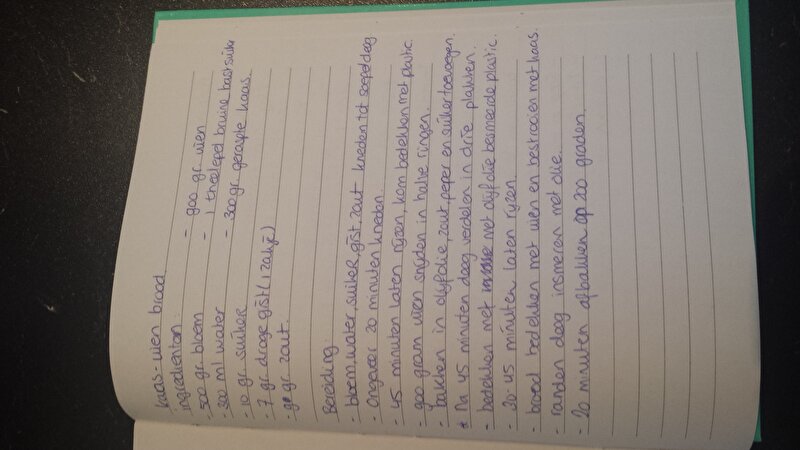 kaas-uien brood
ingredienten
- 500 gr. bloem - 900 gr. uien
- 300 ml water - 1 theelepel bruine bastsuiker
- 10 gr. suiker - 300 gr. geraspte kaas.
- 7 gr. droge gist (1 zakje)
- gr zout.
Bereiding
- bloem, water, suiker, gist, zout kneden tot soepel deeg
- Ongeveer 20 minuten kneden.
- 45 minuten laten rijzen, kom bedekken met plastic.
- 900 gram uien snijden in halve ringen.
- bakken in olijfolie, zout, peper en suiker toevoegen.
* Na 45 minuten deeg verdelen in drie plakken.
- bedekken met met olijfolie besmeerde plastic.
- 20 45 minuten laten rijzen
- brood bedekken met uien en bestrooien met kaas.
- randen deeg insmeren met olie.
- 20 minuten afbakken op 200 graden.